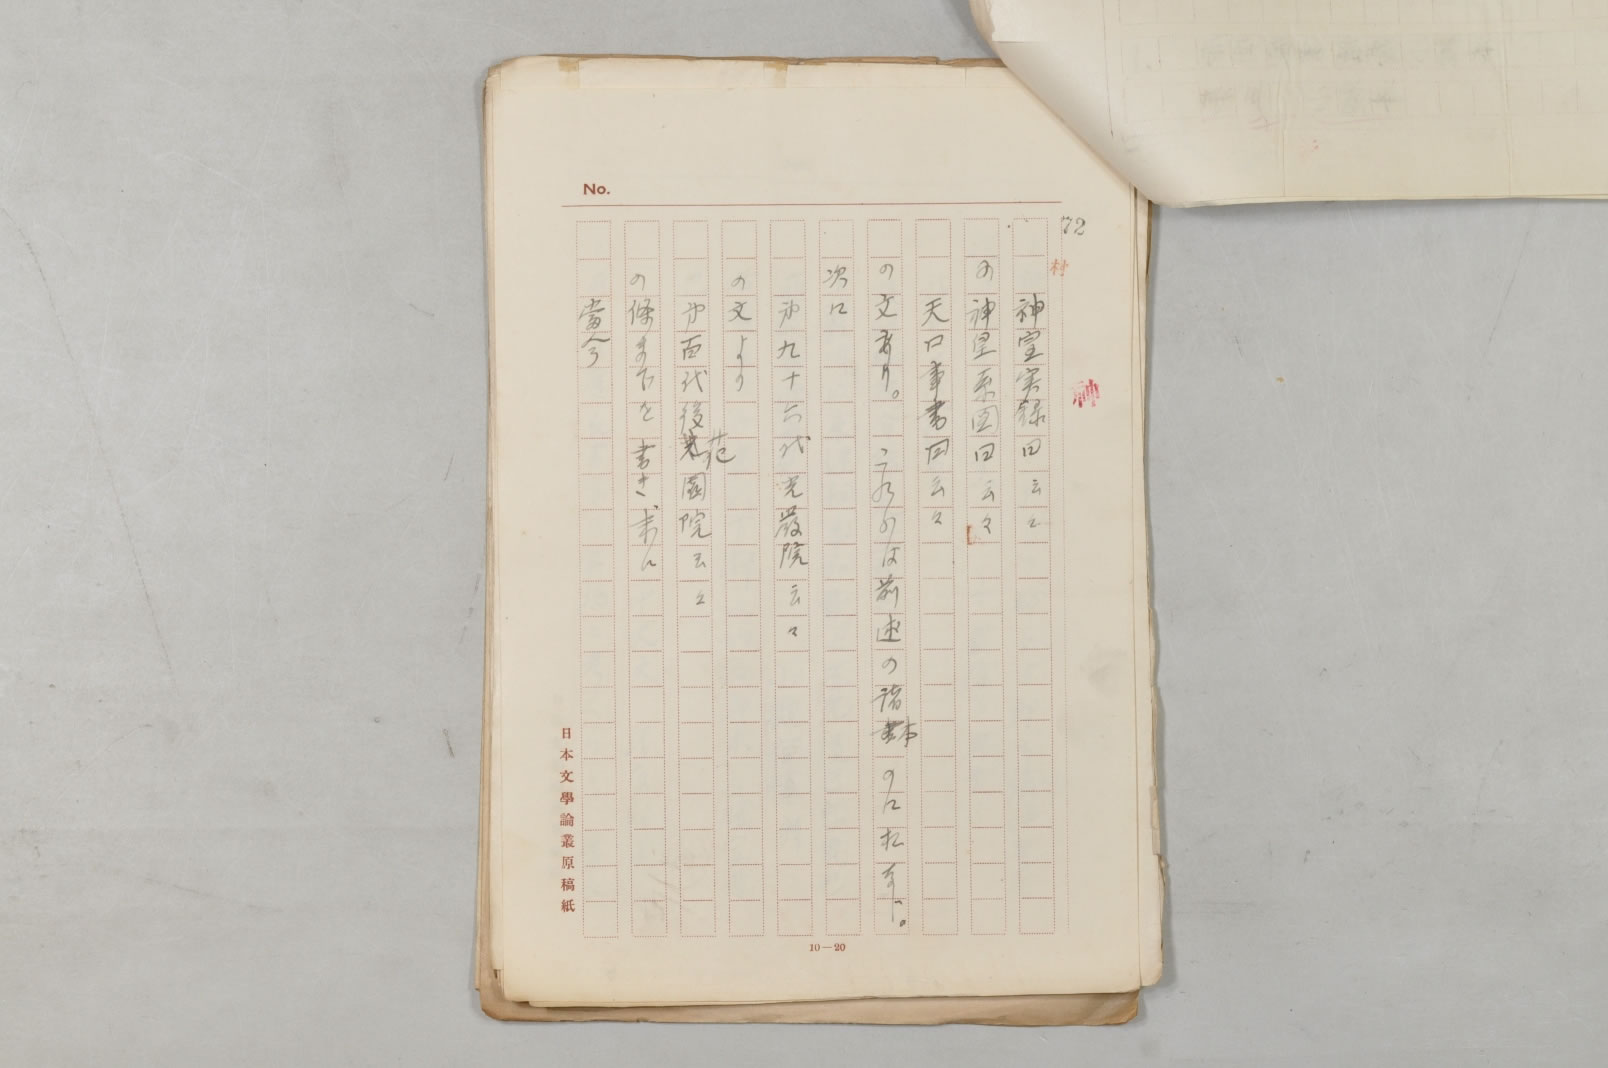 No.
72
村
神
神皇実録曰云々
の神皇系図曰云々
天口事書曰云々
の文あり。これらは前述の諸本のに松なし。
次に
第九十六代光厳院云々
の文より
第百代後花園院云々
の條までを書き、末に
當今
日本文學論叢原稿紙
10—20